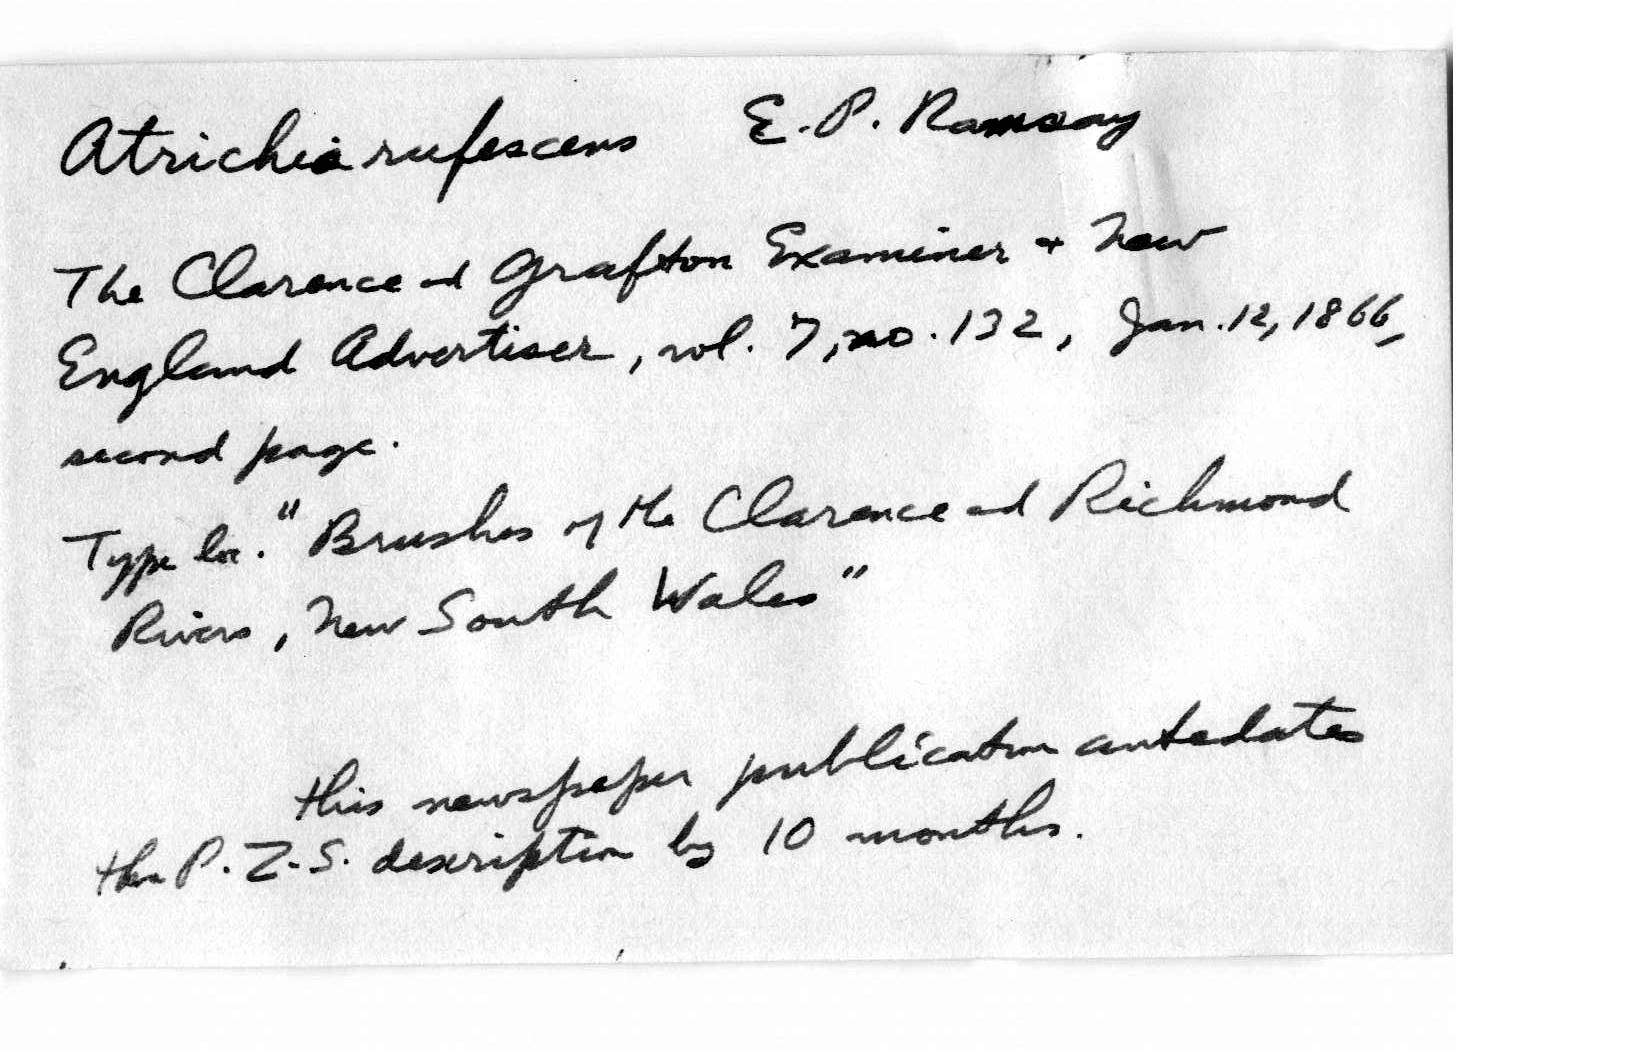 Atrichia rufescens E. P. Ramsay
The Clarence and Grafton Examiner + New
England Advertiser, vol. 7, no. 132, Jan. 12, 1866,
second page.
Type loc. "Brushes of the Clarence and Richmond
Rivers, New South Wales"
this newspaper publication antedates
the P. Z. S. description by 10 months.